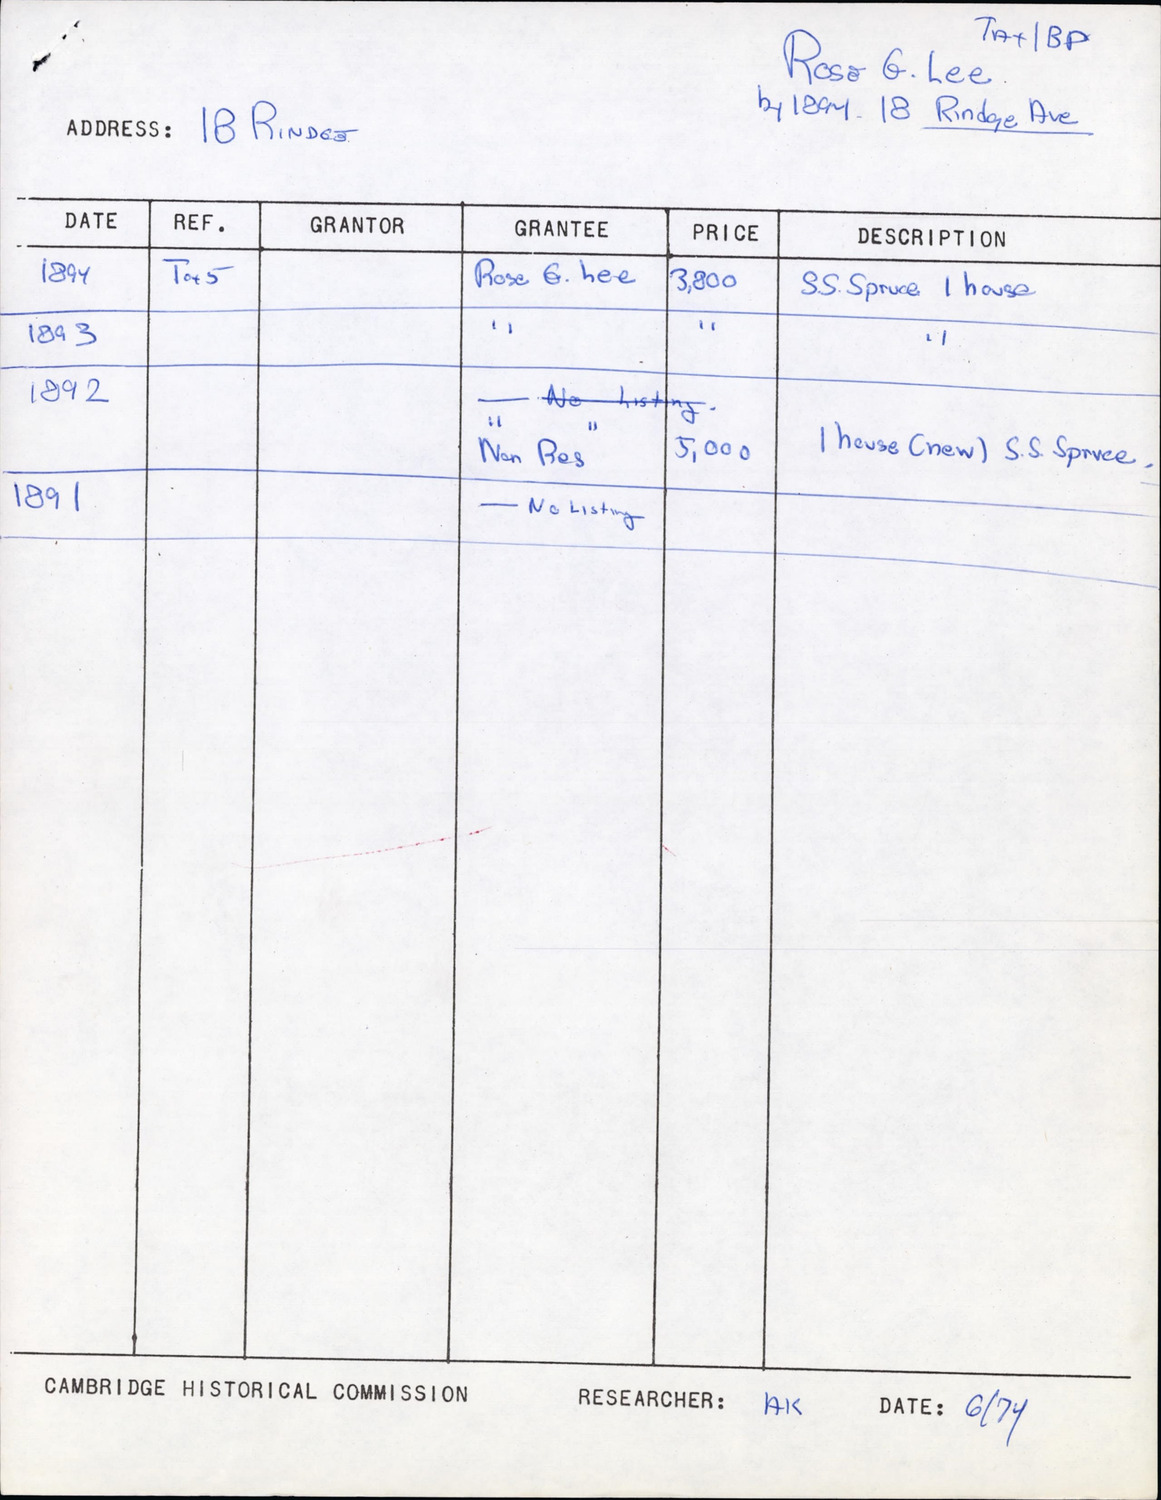 Tax/BP
Rose G. Lee.
by 1894 - 18 Rindge Ave
ADDRESS: 18 Rindge
DATE REF. GRANTOR GRANTEE PRICE DESCRIPTION
1894 Tax 5 Rose G. Lee 3,800 S.S. Spruce 1 house
1893 " " "
1892 — No Listing.
" "
Non Res 5,000 1 house (new) S.S. Spruce.
1891 — No Listing
CAMBRIDGE HISTORICAL COMMISSION RESEARCHER: AK DATE: 6/74